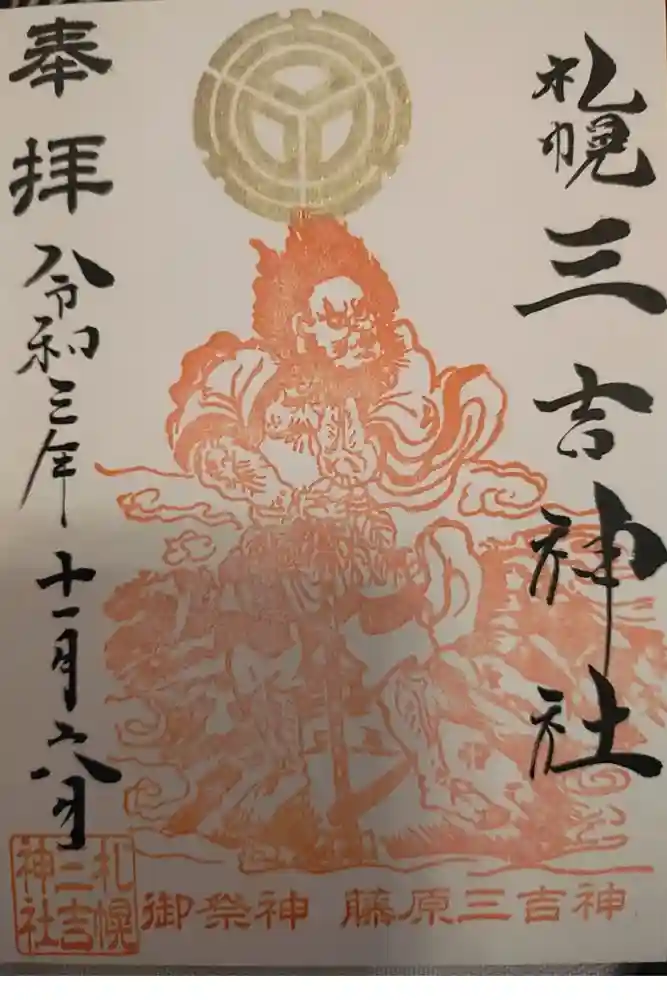 札幌三吉神社
奉拝
令和三年十一月六日
札幌
三吉
神社
御祭神 藤原三吉神